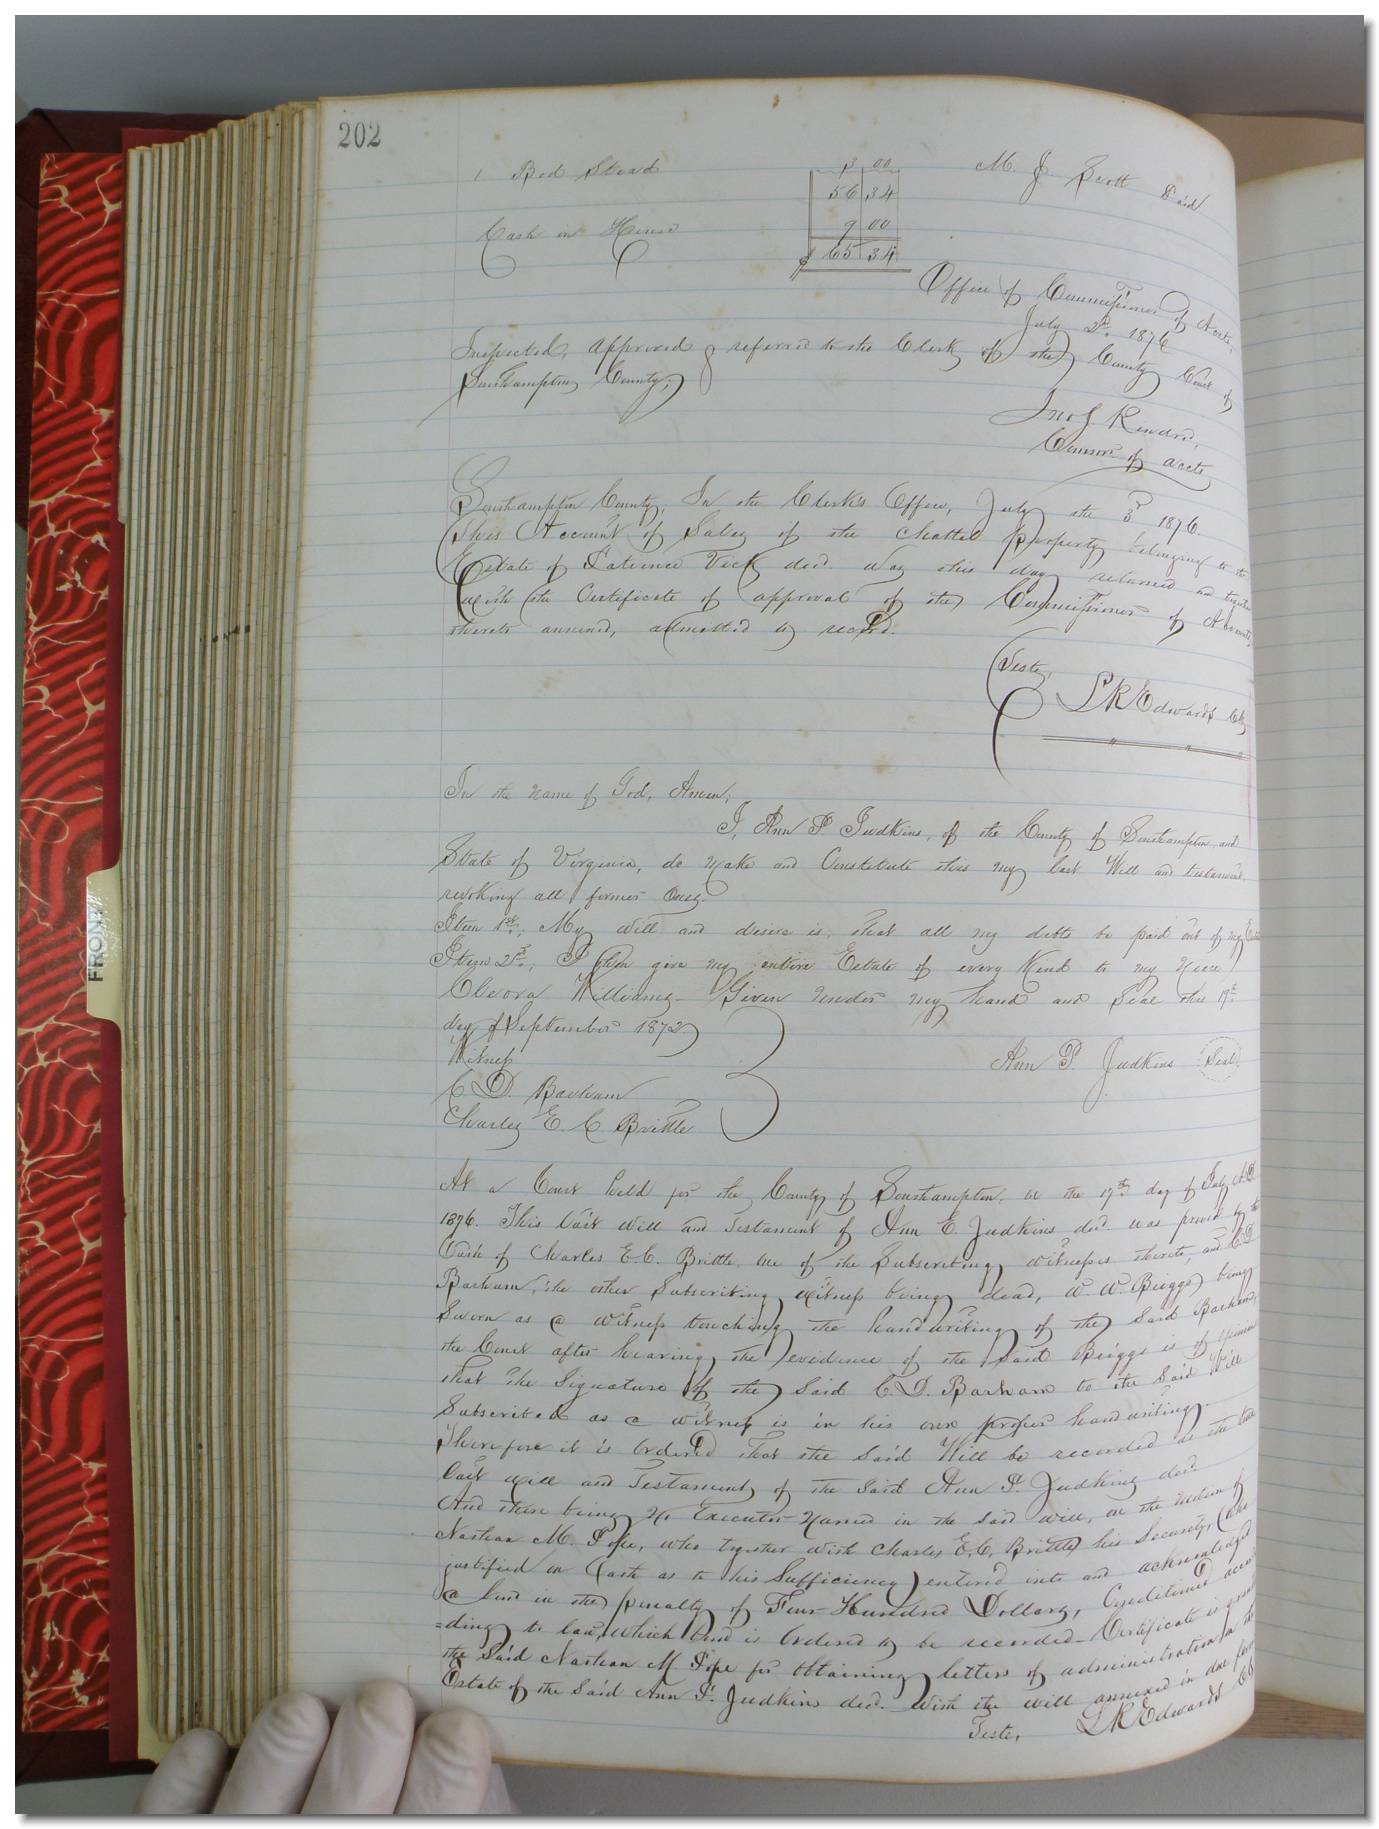 202
1 Bed Stead 3 00 M. J. Scott Paid
56 34
Cash in House 9 00
$ 65 34
Office of Commissioner of Accts,
July 2d. 1876
Inspected, approved & referred to the Clerk of the County Court of
Southampton County;
Jno J. Kendred,
Commr. of accts
Southampton County, In the Clerk's Office, July the 3d 1876.
This Account of Sales of the chattel property belonging to the
Estate of Patience Vick decd. was this day returned and together
with the Certificate of approval of the Commissioner of Accounts,
thereto annexed, admitted to record.
Teste,
L R Edwards Clk
In the name of God, Amen,
I, Ann P Judkins, of the County of Southampton and
State of Virginia, do make and Constitute this my last Will and testament,
revoking all former ones.
Item 1st; My will and desire is, that all my debts be paid out of my Estate
Item 2d., I then give my entire Estate of every Kind to my Niece
Cleora Williams. Given under my hand and Seal this 17th
day of September 1872
Witness
C. D. Barham
Ann P. Judkins Seal
Charles E. C. Brittle
At a Court held for the County of Southampton, on the 17th day of July A.D
1876. This last will and testament of Ann E. Judkins decd. was proved by the
Oath of Charles E.C. Brittle, one of the Subscribing witnesses thereto, and C.D.
Barham, the other Subscribing witness being dead, W. W. Briggs being
Sworn as a witness touching the handwriting of the Said Barham,
the Court after hearing the evidence of the Said Briggs is of opinion
that the Signature of the Said C. D. Barham to the Said Will
Subscribed as a witness is in his own proper handwriting.
Therefore it is Ordered that the Said Will be recorded as the true
last will and Testament of the Said Ann P. Judkins decd.
And there being no Executor Named in the Said Will, on the motion of
Nathan M. Pope, who together with Charles E,C, Brittle his Security, (who
justified on Oath as to his Sufficiency) entered into and acknowledged
a bond in the penalty of Four Hundred Dollars, Conditioned accor
=ding to law, which bond is Ordered to be recorded. Certificate is granted
the Said Nathan M Pope for obtaining letters of administration on the
Estate of the Said Ann P. Judkins decd. With the will annexed in due form
Teste, L R Edwards Clk